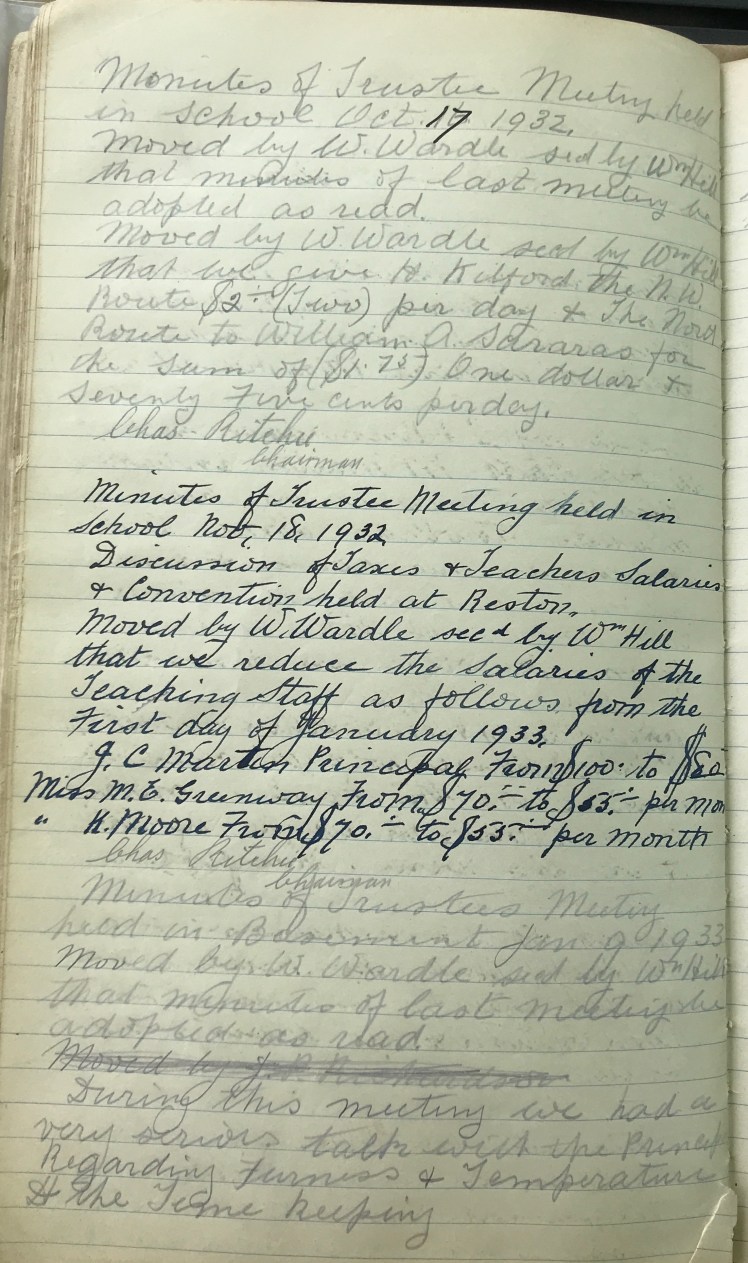 Minutes of Trustee Meeting held
in School Oct. 17 1932.
Moved by W. Wardle secd by Wm Hill
that minutes of last meeting be
adopted as read.
Moved by W. Wardle secd by Wm Hill
that we give H. Kilford the N.W.
Route $2.- (Two) per day & The Nord
Route to William A. for
the sum of ($1.75) One dollar &
Seventy Five cents per day.
Chas. Ritchie
Chairman
Minutes of Trustee Meeting held in
School Nov, 18, 1932
Discussion of Taxes & Teachers Salaries
& Convention held at Reston.
Moved by W. Wardle secd by Wm Hill
that we reduce the Salaries of the
Teaching Staff as follows from the
First day of January 1933.
J. C Martin Principal From $100.- to $80
Miss M.E. Greenway From $70.- to $55.- per mon
" K. Moore From $70.- to $55.- per month
Chas. Ritchie
Chairman
Minutes of Trustees Meeting
held in Basement Jan 9 1933
Moved by W. Wardle secd by Wm Hill
that minutes of last meeting be
adopted as read.
Moved by J. P. Richardson
During this meeting we had a
very serious talk with the Princip
Regarding Furness & Temperature
& the Time Keeping